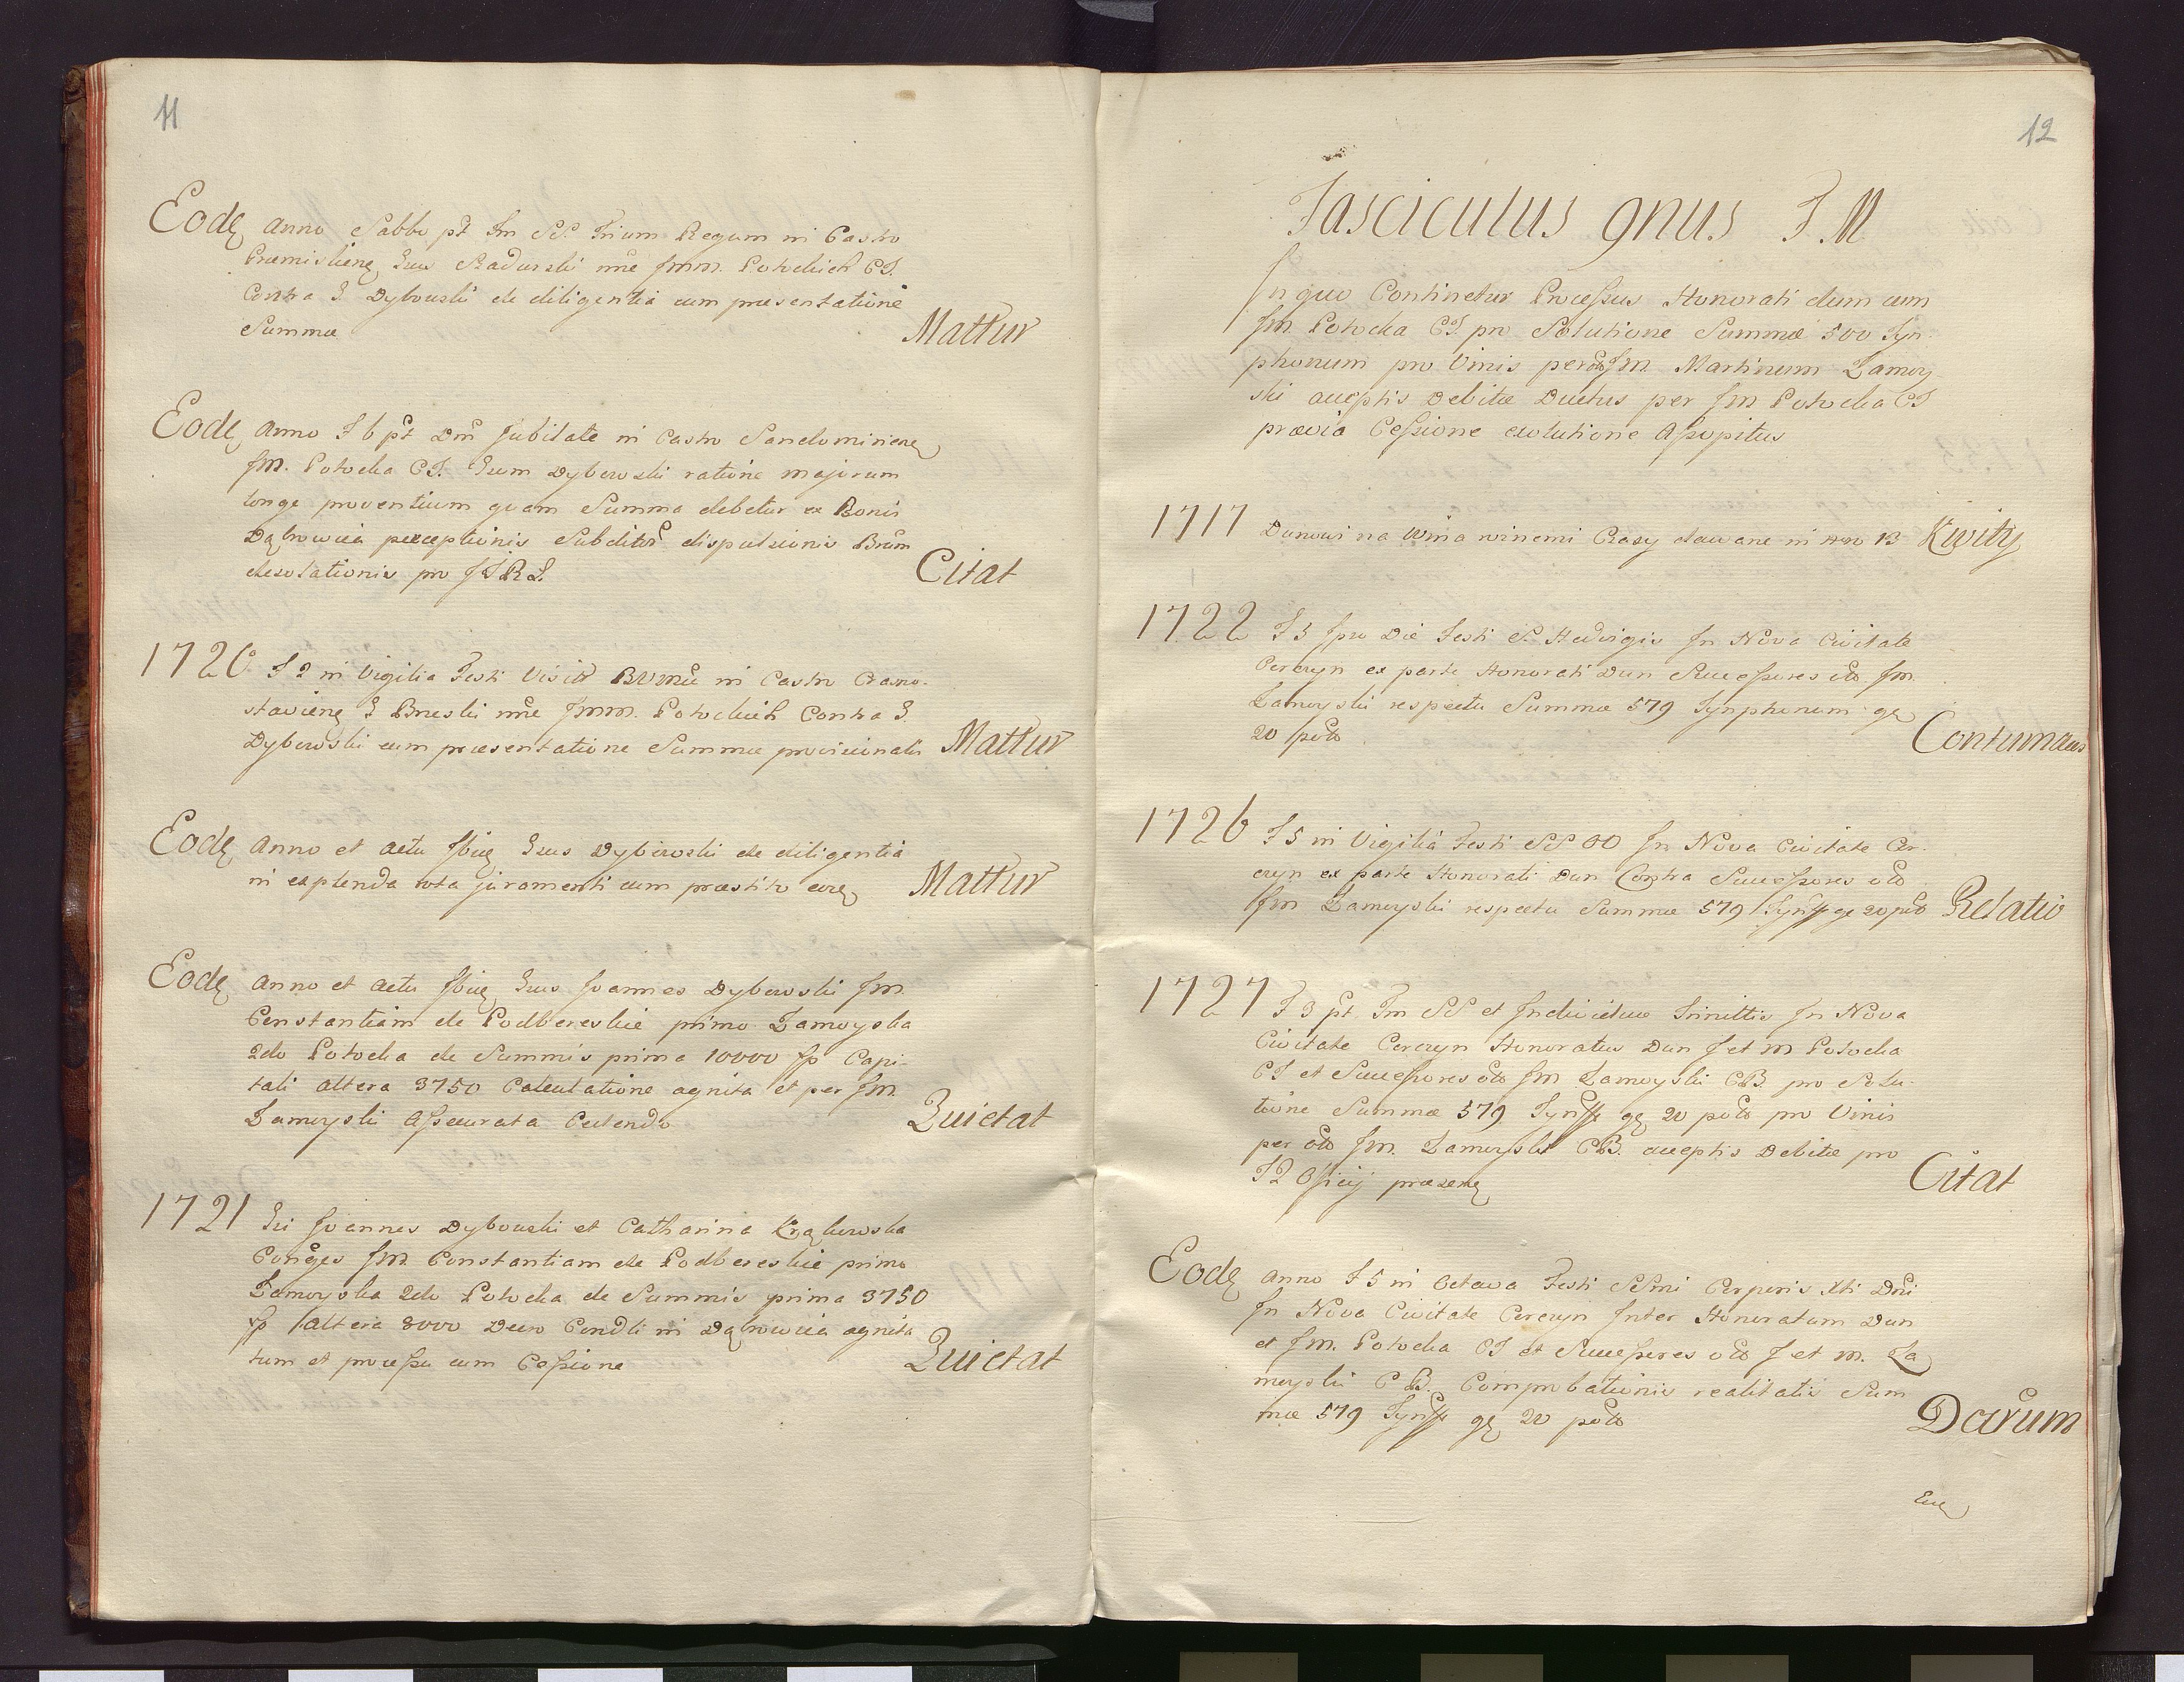 11
Eodę Anno Sabbo pt Fm SS. Trium Regum in Castro
Præmislienę Gnus Radunski nne Jmm. Potockich CS.
Contra G. Dybowski de diligentia cum præsentatione
Summæ Mattur
Eodę Anno F 6 pt Dm Jubilate in Castro Sandomirienę
Jm. Potocka CS. Gum Dybowski ratione majorum
longe proventuum quam Summa debetur ex Bonis
Dąbrowica perceptionis Subditor dispulsionis Bnrm
desolationis pro JTRL Citat
1720 F 2 in Vigilia Festi Visit BVMæ in Castro Crasno-
stavienę G Breski nne Jmm. Potockich Contra G.
Dybowski cum præsentatione Summæ provisionalis Mattur
Eodę Anno et Actu Ibię Gnus Dybowski de diligentia
in explenda rota juramenti cum præstito eorę Mattur
Eodę Anno et Actu Ibię Gnus Joannes Dybowski Jm.
Constantiam de Podbereskie primo Zamoyska
2do Potocka de Summis prima 10000 fp Capi-
tali altera 3750 Calculatione agnita et per Jm.
Zamoyski Assecurata Cedendo Quietat
1721 Gi Joannes Dybowski et Catharina Krąkowska
Conges Jm Constantiam de Podbereskie primo
Zamoyska 2do Potocka de Summis prima 3750
fp altera 8000 Decro Condli in Dąbrowica agnita
tum et processu cum Cessione Quietat
12
Fasciculus 9nus F. M
In quo Continetur Processus Honorati dum cum
Jm. Potocka CS. pro Solutione Summæ 500 Tyn
phonum pro Vinis per oto Jm. Martinum Zamoy
ski acceptis Debitæ Ductus per Jm Potocka CS
prævia Cessione exolutione Assopitus
1717 Dunowi na wina winemi Czasy dawane in nro 13 Kwity
1722 F 3 Ipso Die Festi S. Hedvigis In Nova Civitate
Cerczyn ex parte Honorati Dun Successores oto Jm.
Zamoyski respectu Summæ 579 Tynphonum gę
20 poto Contumacia
1726 F 5 in Vigilia Festi SS OO In Nova Civitate Cer-
czyn ex parte Honorati Dun Contra Successores oto
Jm Zamoyski respectu Summæ 579 Tynff gę 20 poto Relatio
1727 F 3 pt Fm SS et Individuæ Trinittis In Nova
Civitate Cerczyn Honoratus Dun J et M Potocka
CS et Successores oto Jm Zamoyski CB. pro Solu-
tione Summæ 579 Tynff gę 20 poto pro Vinis
per oto Jm. Zamoyski CB. acceptis Debitæ pro
JZ Officij præsenę Citat
Eodę Anno F 5 in Octava Festi SSmi Corporis Xti Dni
In Nova Civitate Cerczyn Inter Honoratum Dun
et Jm. Potocka CS et Successores oto J et M. Za
moyski CB. Comprobationis realitatis Sum
mæ 579 Tynff gę 20 poto Decrum